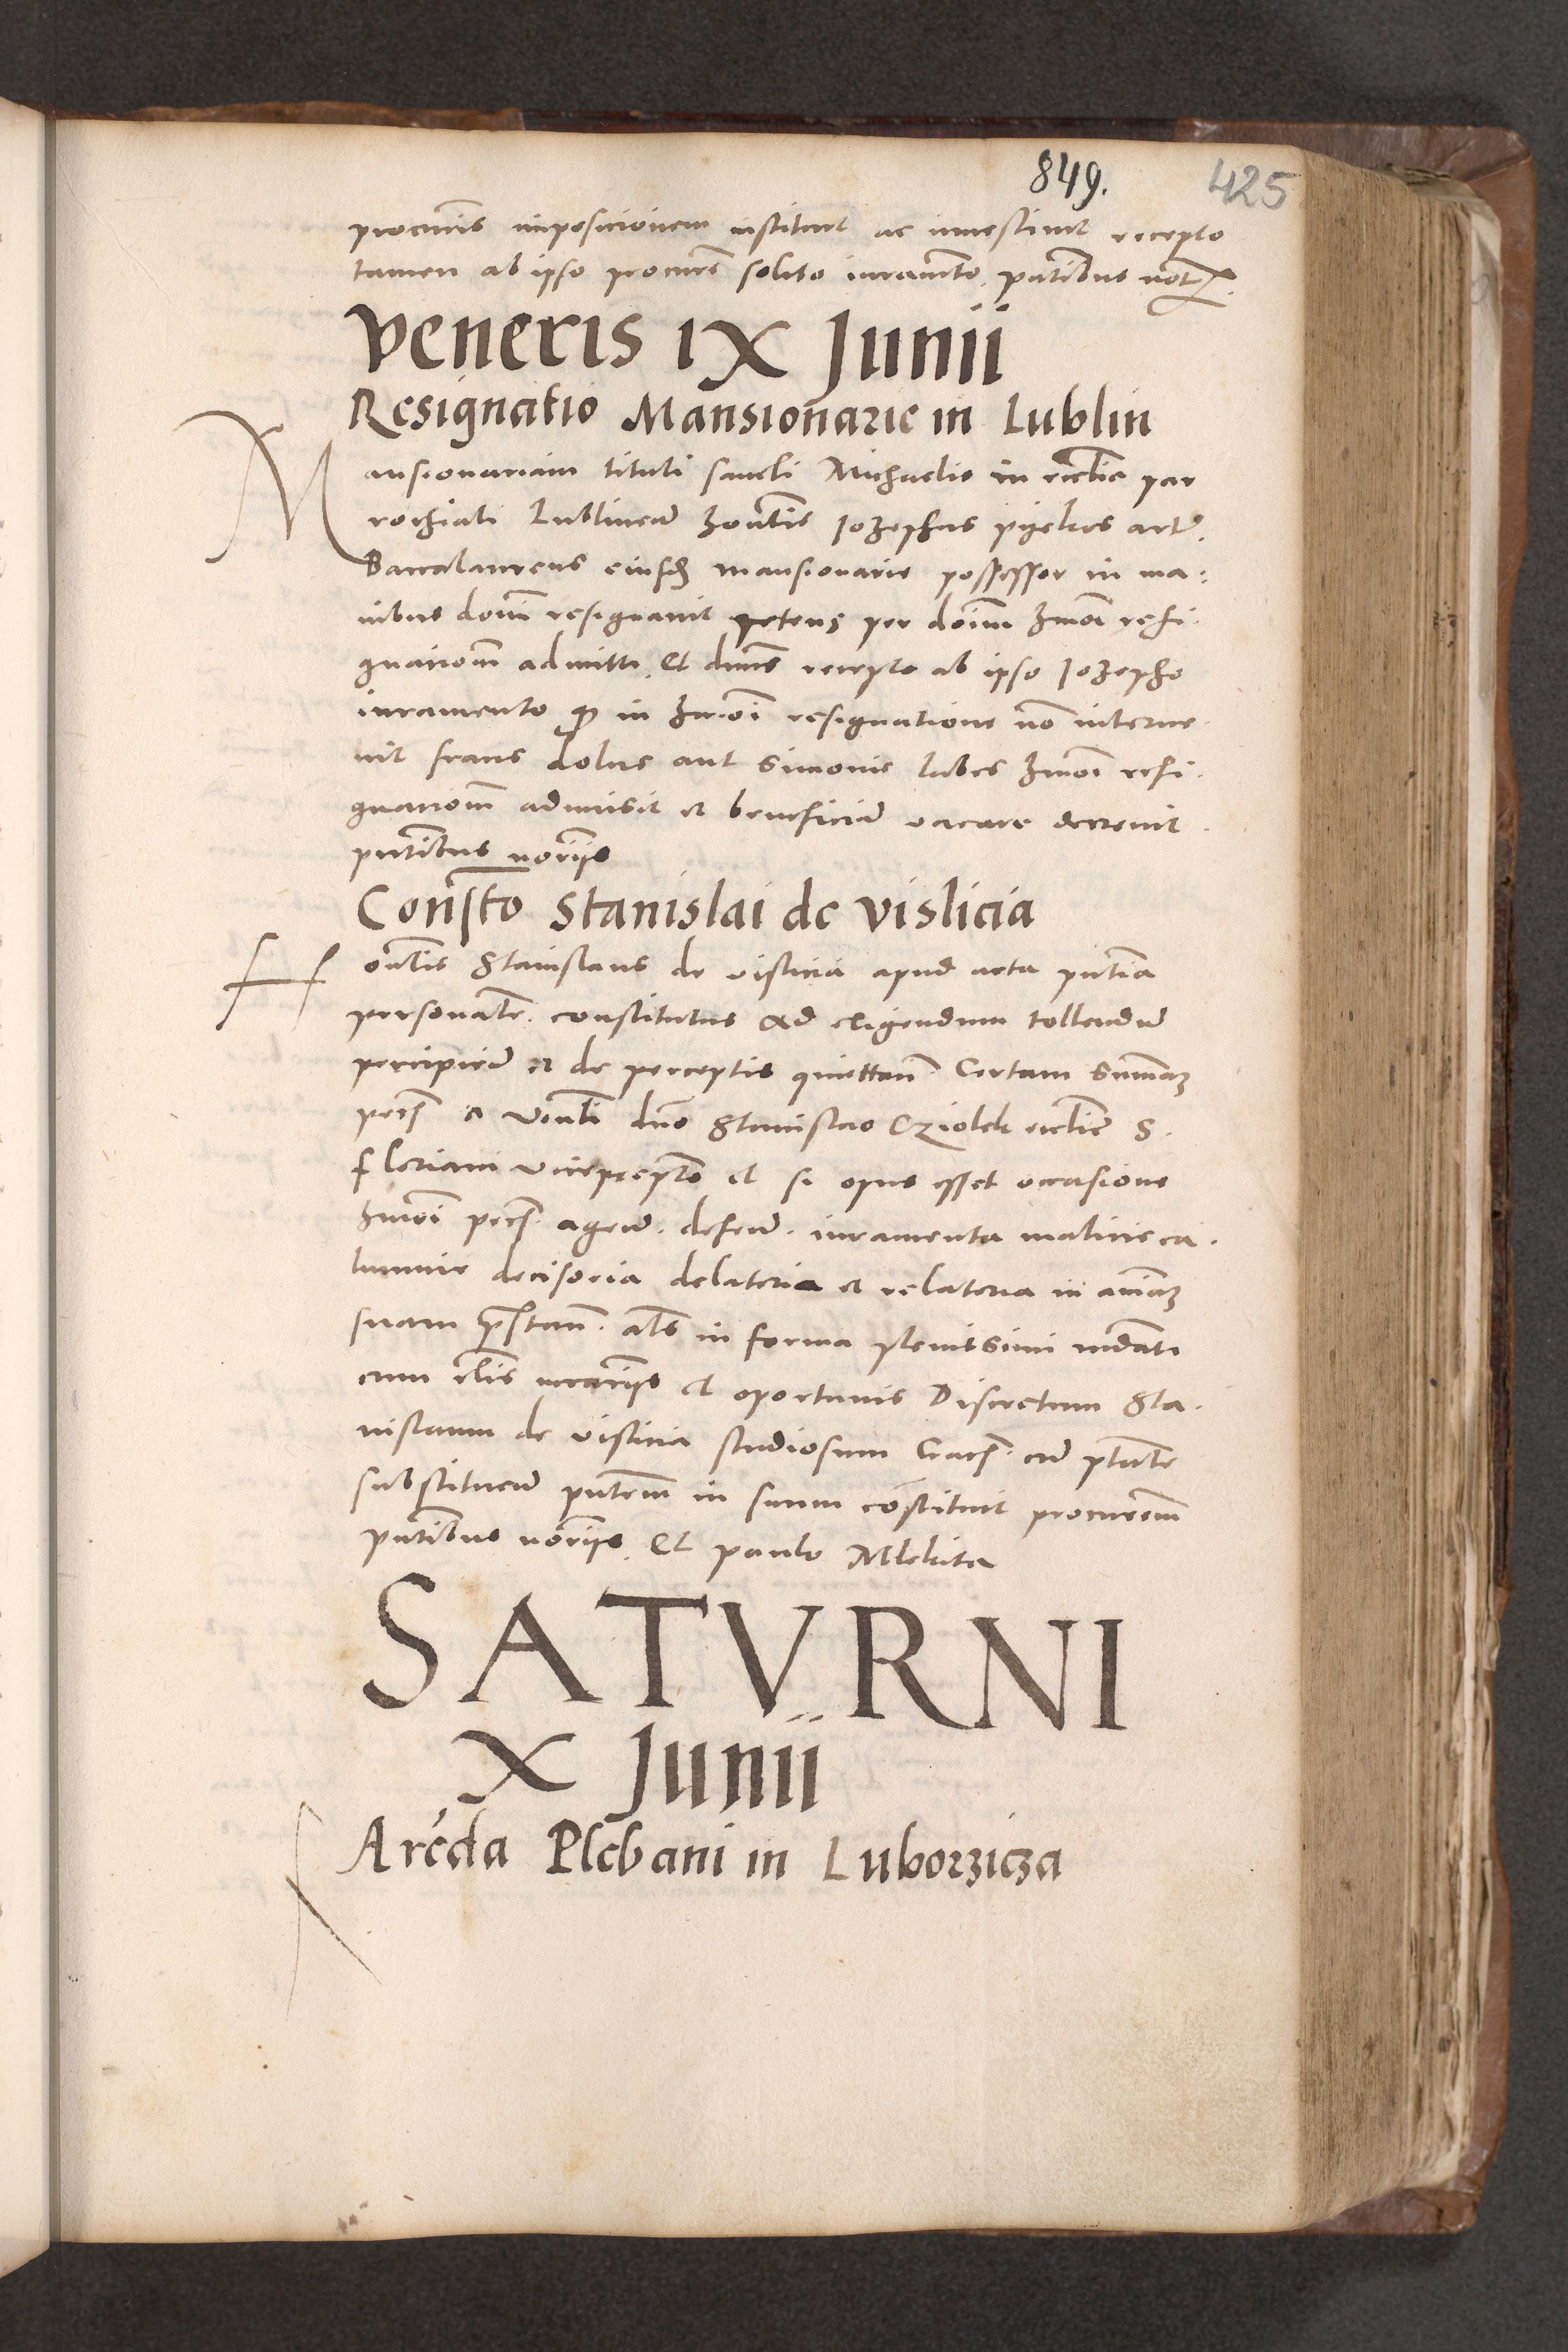 849. 425
procuris imposicionem instituit ac investivit recepto
tamen ab ipso procure solito iuramento, pntibus not.
Veneris IX Junii
Resignatio Mansionarie in Lublin
Mansionariam tituli sancti Michaelis in ecclie par
rochiali Lublinen honlis Iozephus pizelus artiu.
Baccalaureus eiusdem mansionarie possessor in ma:
nibus domi resignavit petens per doim hmoi resi.
gnacionem admitti. Et dnus recepto ab ipso Iozepho
iuramento quod in hmoi resignatione no interue.
nit fraus dolus aut simonie labes hmoi resi.
gnacionem admisit et beneficiu vacare decrevit.
pntibus norijs
Constto Stanislai de Vislicia
Honlis Stanislaus de vislicia apud acta pntia
personalr. constitutus Ad exigendum tollendu
percipiedu et de perceptis quiettan. Certam summam
pecu a venli dno Stanislao Cziolek ecclie S.
Floriani viceprepto et si opus esset occasione
hmoi pecu. agen. defen. iuramenta malicie ca.
lumnie decisoria delatoria et relatoria in animam
suam prestan. als in forma plenissimi mdati
cum clis necarijs et oportunis Discretum Sta.
nislaum de vislicia studiosum Crac. cu ptate
substituen pntem in suum constituit procurem
pntibus norijs. Et paulo Mlekita
SATVRNI
X Junii
Areda Plebani in Luborzicza